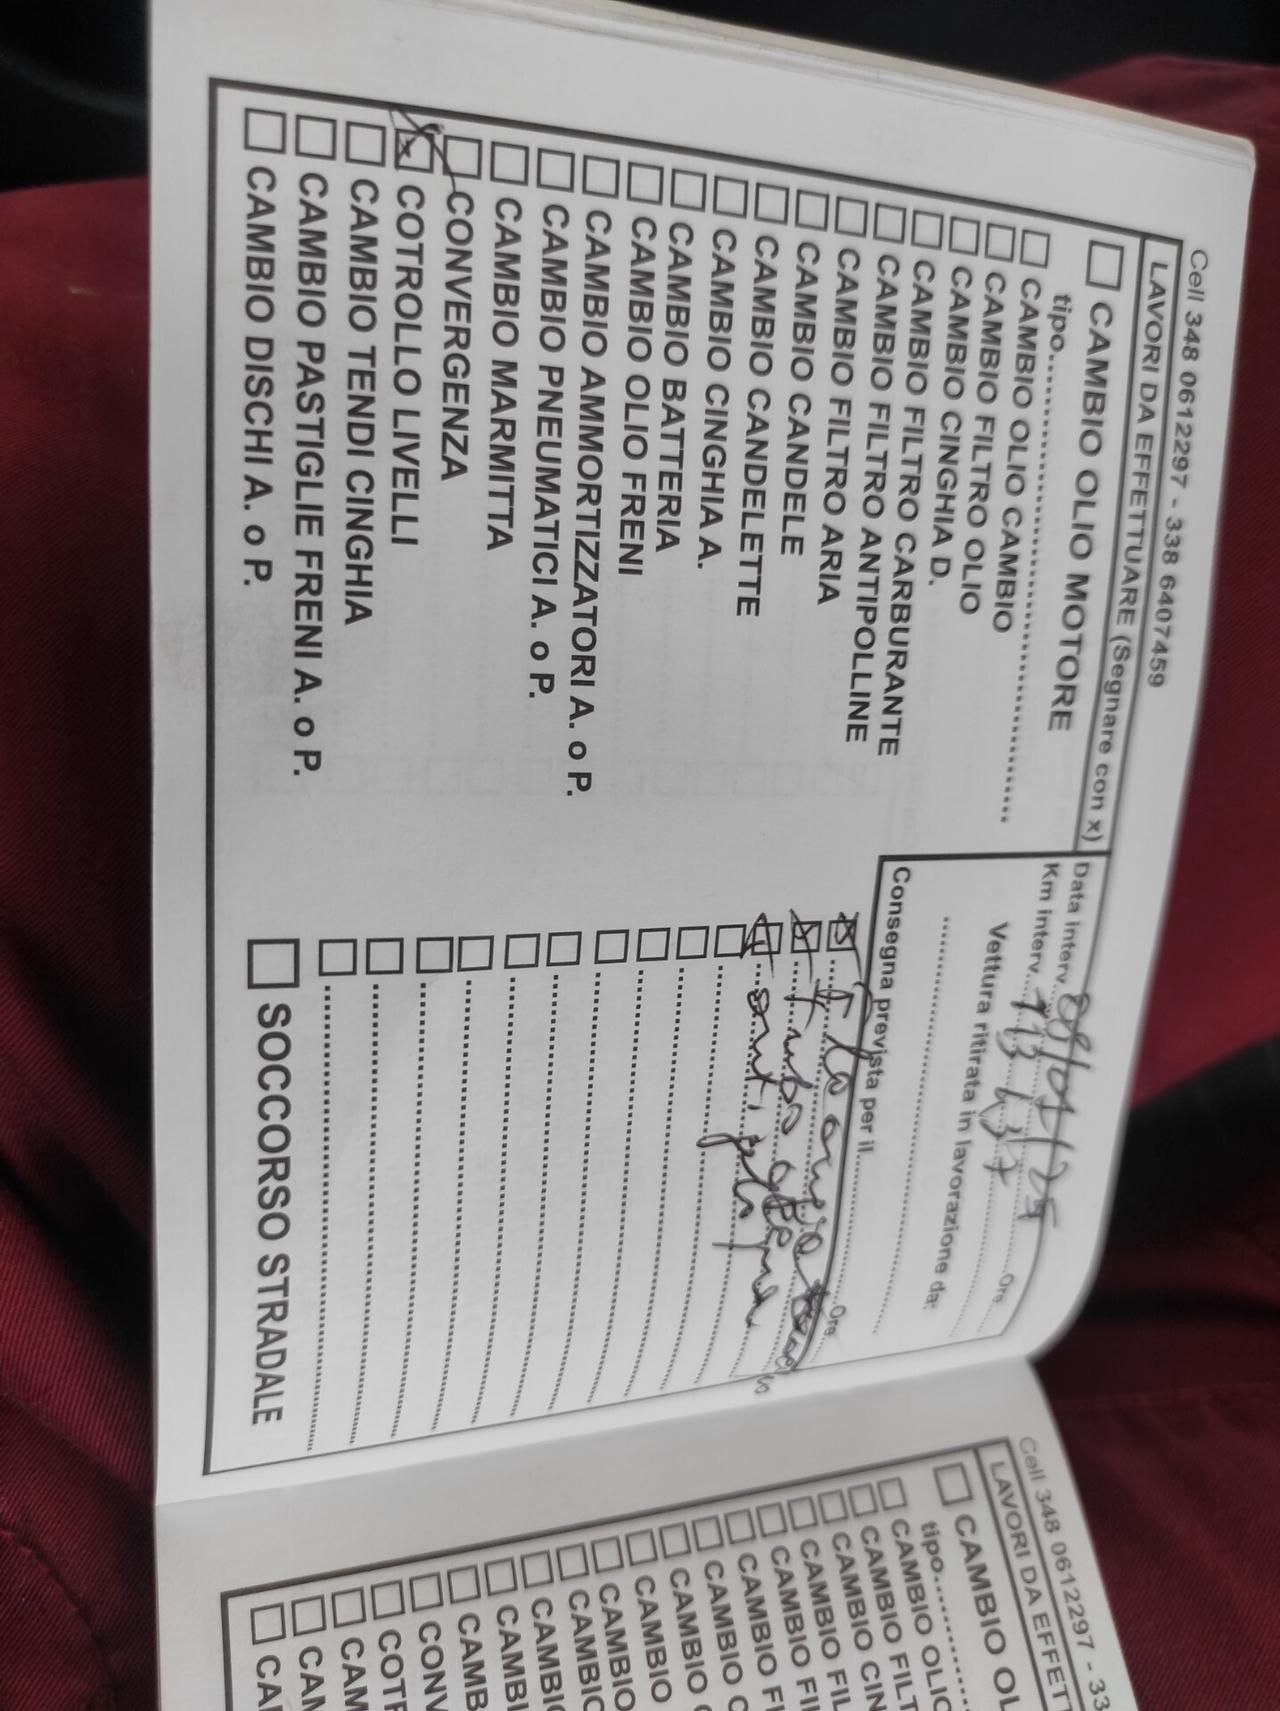 Cell 348 0612297 - 338 6407459
LAVORI DA EFFETTUARE (Segnare con x)
CAMBIO OLIO MOTORE
tipo
CAMBIO OLIO CAMBIO
CAMBIO FILTRO OLIO
CAMBIO CINGHIA D.
CAMBIO FILTRO CARBURANTE
CAMBIO FILTRO ANTIPOLLINE
CAMBIO FILTRO ARIA
CAMBIO CANDELE
CAMBIO CANDELETTE
CAMBIO CINGHIA A.
CAMBIO BATTERIA
CAMBIO OLIO FRENI
CAMBIO AMMORTIZZATORI A. o P.
CAMBIO PNEUMATICI A. o P.
CAMBIO MARMITTA
CONVERGENZA
COTROLLO LIVELLI
CAMBIO TENDI CINGHIA
CAMBIO PASTIGLIE FRENI A. o P.
CAMBIO DISCHI A. o P.
Data interv.
Km interv. Ore
Vettura ritirata in lavorazione da:
Consegna prevista per il Ore
tubo
SOCCORSO STRADALE
Cell 348 0612297 - 33
LAVORI DA EFFETT
CAMBIO OL
tipo
CAMBIO OLIO
CAMBIO FILT
CAMBIO CIN
CAMBIO FIL
CAMBIO FI
CAMBIO F
CAMBIO C
CAMBIO
CAMBIO
CAMBIO
CAMBIO
CAMBI
CAMB
CONV
COTR
CAM
CAM
CA